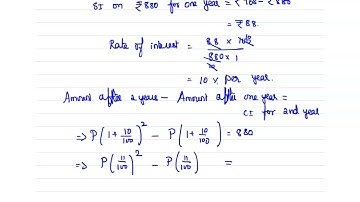 SI on ₹880 for one year = ₹968 - ₹880
= ₹88.
Rate of interest = 88 × 100
880 × 1
10
= 10 % per year.
Amount after 2 years - Amount after one year =
CI for 2nd year
⇒ P(1 + 10/100)² - P(1 + 10/100) = 880
⇒ P(11/100)² - P(11/100) =